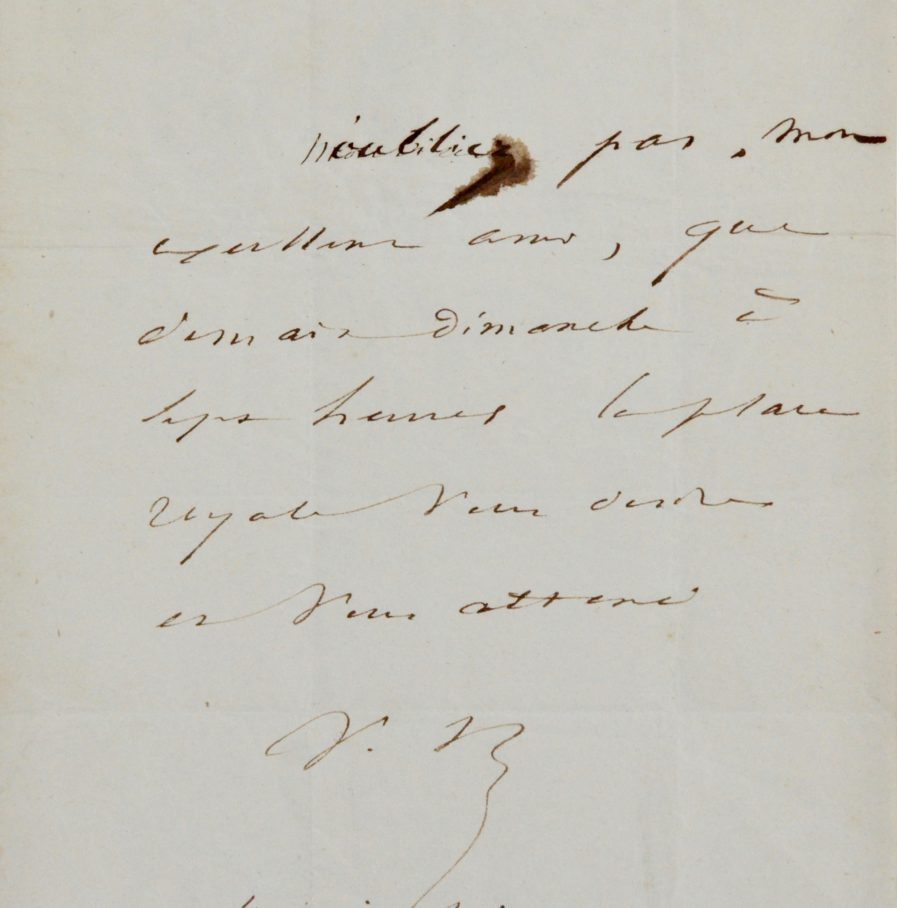 n'oubliez pas, mon
excellent ami, que
demain dimanche à
sept heures la place
royale vous désire
et vous attend
V. H